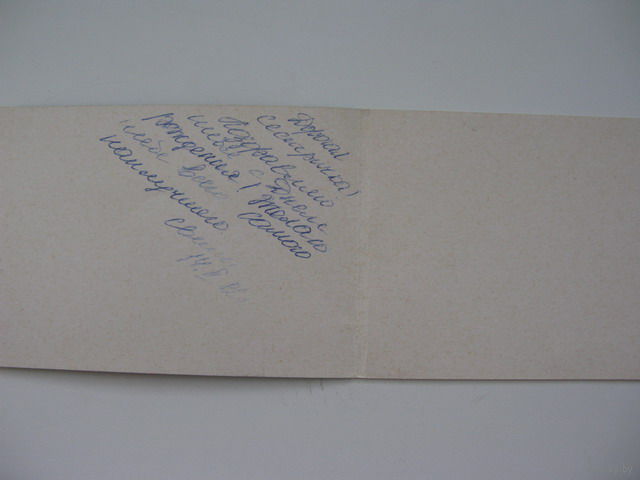 Дорогая
сестричка!
Поздравляю
тебя с Днем
Рождения! Желаю
тебе всего самого
наилучшего